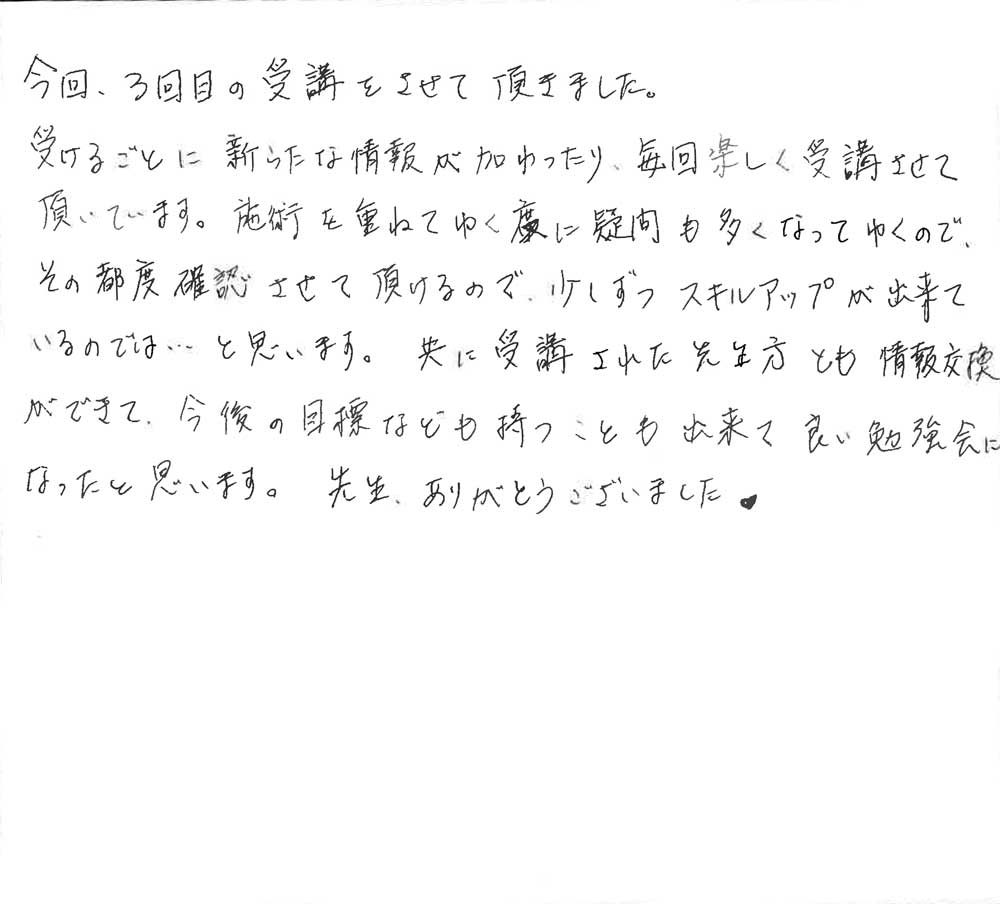 今回、3回目の受講をさせて頂きました。
受けるごとに新らたな情報が加わったり、毎回楽しく受講させて
頂いています。施術を重ねてゆく度に疑問も多くなってゆくので、
その都度確認させて頂けるので、少しずつスキルアップが出来て
いるのでは…と思います。 共に受講された先生方とも情報交換
ができて、今後の目標なども持つことも出来て良い勉強会に
なったと思います。 先生、ありがとうございました♥